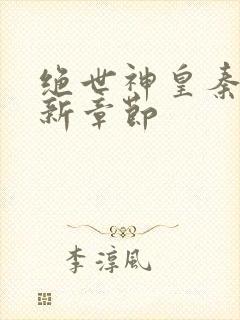 绝世神皇秦
新章节
李淳风